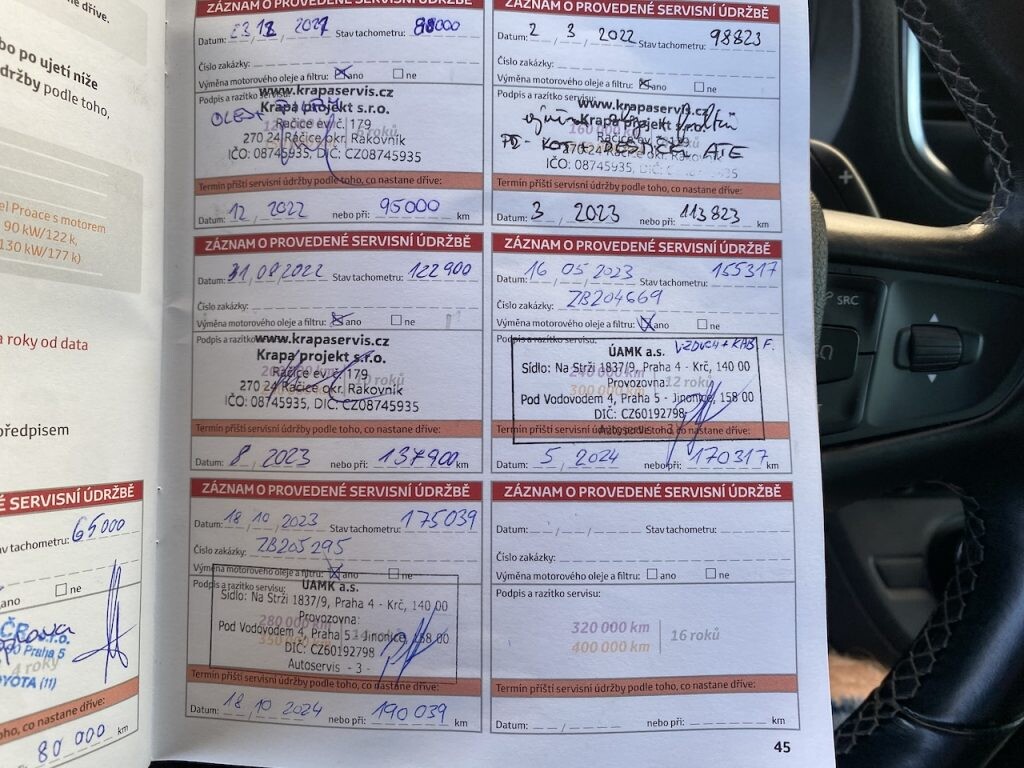 é dříve.
bo po ujetí níže
držby podle toho,
el Proace s motorem
90 kW/122 k,
130 kW/177 k)
a roky od data
ředpisem
É SERVISNÍ ÚDRŽBĚ
av tachometru: 65000
ano ne
ČR s.r.o.
Praha 5
4 roky
YOTA (11)
ho, co nastane dříve:
80 000 km
ZÁZNAM O PROVEDENÉ SERVISNÍ ÚDRŽBĚ
Datum: 23 12 2021 Stav tachometru:
Číslo zakázky:
Výměna motorového oleje a filtru: ano ne
Podpis a razítko servisu:
www.krapaservis.cz
Krapa projekt s.r.o.
Račice ev.č. 179
270 24 Račice okr. Rakovník
IČO: 08745935, DIČ: CZ08745935
Termín příští servisní údržby podle toho, co nastane dříve:
Datum: 12 2022 nebo při: 95000 km
ZÁZNAM O PROVEDENÉ SERVISNÍ ÚDRŽBĚ
Datum: 2 3 2022 Stav tachometru: 98823
Číslo zakázky:
Výměna motorového oleje a filtru: ano ne
Podpis a razítko servisu:
www.krapaservis.cz
Krapa projekt s.r.o.
160 000 km
ATE
270 24 Račice okr. Rakovník
Termín příští servisní údržby podle toho, co nastane dříve:
Datum: 3 2023 nebo při: 113823 km
ZÁZNAM O PROVEDENÉ SERVISNÍ ÚDRŽBĚ
Datum: 31 08 2022 Stav tachometru: 122900
Číslo zakázky:
Výměna motorového oleje a filtru: ano ne
Podpis a razítko servisu:
www.krapaservis.cz
Krapa projekt s.r.o.
Račice ev.č. 179
10 roků
270 24 Račice okr. Rakovník
IČO: 08745935, DIČ: CZ08745935
Termín příští servisní údržby podle toho, co nastane dříve:
Datum: 8 2023 nebo při: 137900 km
ZÁZNAM O PROVEDENÉ SERVISNÍ ÚDRŽBĚ
Datum: 16 05 2023 Stav tachometru: 155317
Číslo zakázky: ZB204669
Výměna motorového oleje a filtru: ano ne
VZDUCH + KAB F.
ÚAMK a.s.
Sídlo: Na Strži 1837/9, Praha 4 - Krč, 140 00
240 000 km
Provozovna: 12 roků
300 000 km
Pod Vodovodem 4, Praha 5 - Jinonice, 158 00
DIČ: CZ60192798
Termín příští servisní údržby podle toho, co nastane dříve:
Datum: 5 2024 nebo při: 170317 km
ZÁZNAM O PROVEDENÉ SERVISNÍ ÚDRŽBĚ
Datum: 18 10 2023 Stav tachometru: 175039
Číslo zakázky: ZB205295
Výměna motorového oleje a filtru: ano ne
Podpis a razítko servisu:
ÚAMK a.s.
Sídlo: Na Strži 1837/9, Praha 4 - Krč, 140 00
Provozovna:
280 000 km
Pod Vodovodem 4, Praha 5 - Jinonice, 158 00
DIČ: CZ60192798
Autoservis - 3 -
Termín příští servisní údržby podle toho, co nastane dříve:
Datum: 18 10 2024 nebo při: 190 039 km
ZÁZNAM O PROVEDENÉ SERVISNÍ ÚDRŽBĚ
Datum: Stav tachometru:
Číslo zakázky:
Výměna motorového oleje a filtru: ano ne
Podpis a razítko servisu:
320 000 km
400 000 km
16 roků
Termín příští servisní údržby podle toho, co nastane dříve:
Datum: nebo při: km
45
SRC